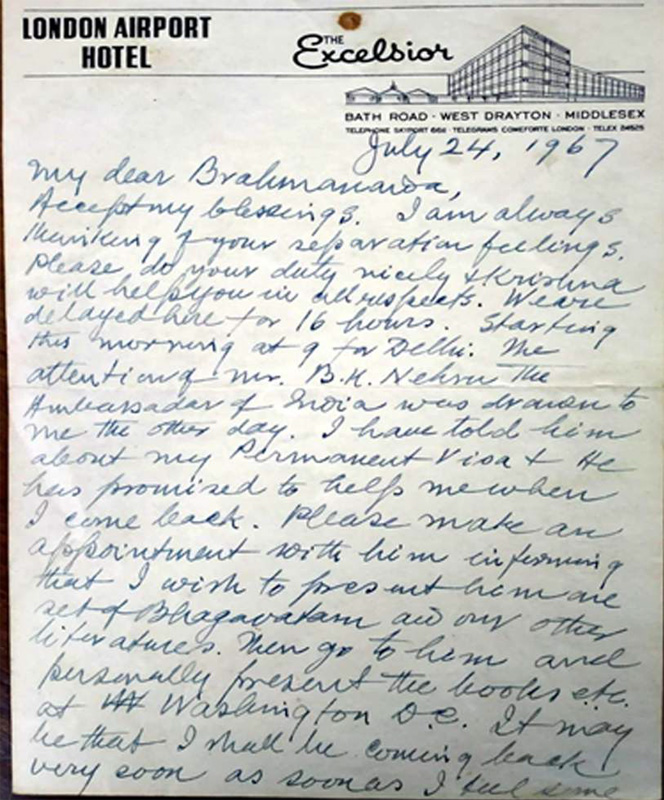 LONDON AIRPORT
HOTEL
THE
Excelsior
BATH ROAD · WEST DRAYTON · MIDDLESEX
TELEPHONE SKYPORT 6611 · TELEGRAMS COMEFORTE LONDON · TELEX 24525
July 24, 1967
My dear Brahmananda,
Accept my blessings. I am always
thinking of your separation feelings.
Please do your duty nicely & Krishna
will help you in all respects. We are
delayed here for 16 hours. Starting
this morning at 9 for Delhi. The
attention of Mr. B.K. Nehru the
Ambassador of India was drawn to
me the other day. I have told him
about my Permanent Visa & He
has promised to help me when
I come back. Please make an
appointment with him informing
that I wish to present him one
set of Bhagavatam and our other
literatures. Then go to him and
personally present the books etc.
at Washington D.C. It may
be that I shall be coming back
very soon as soon as I feel some